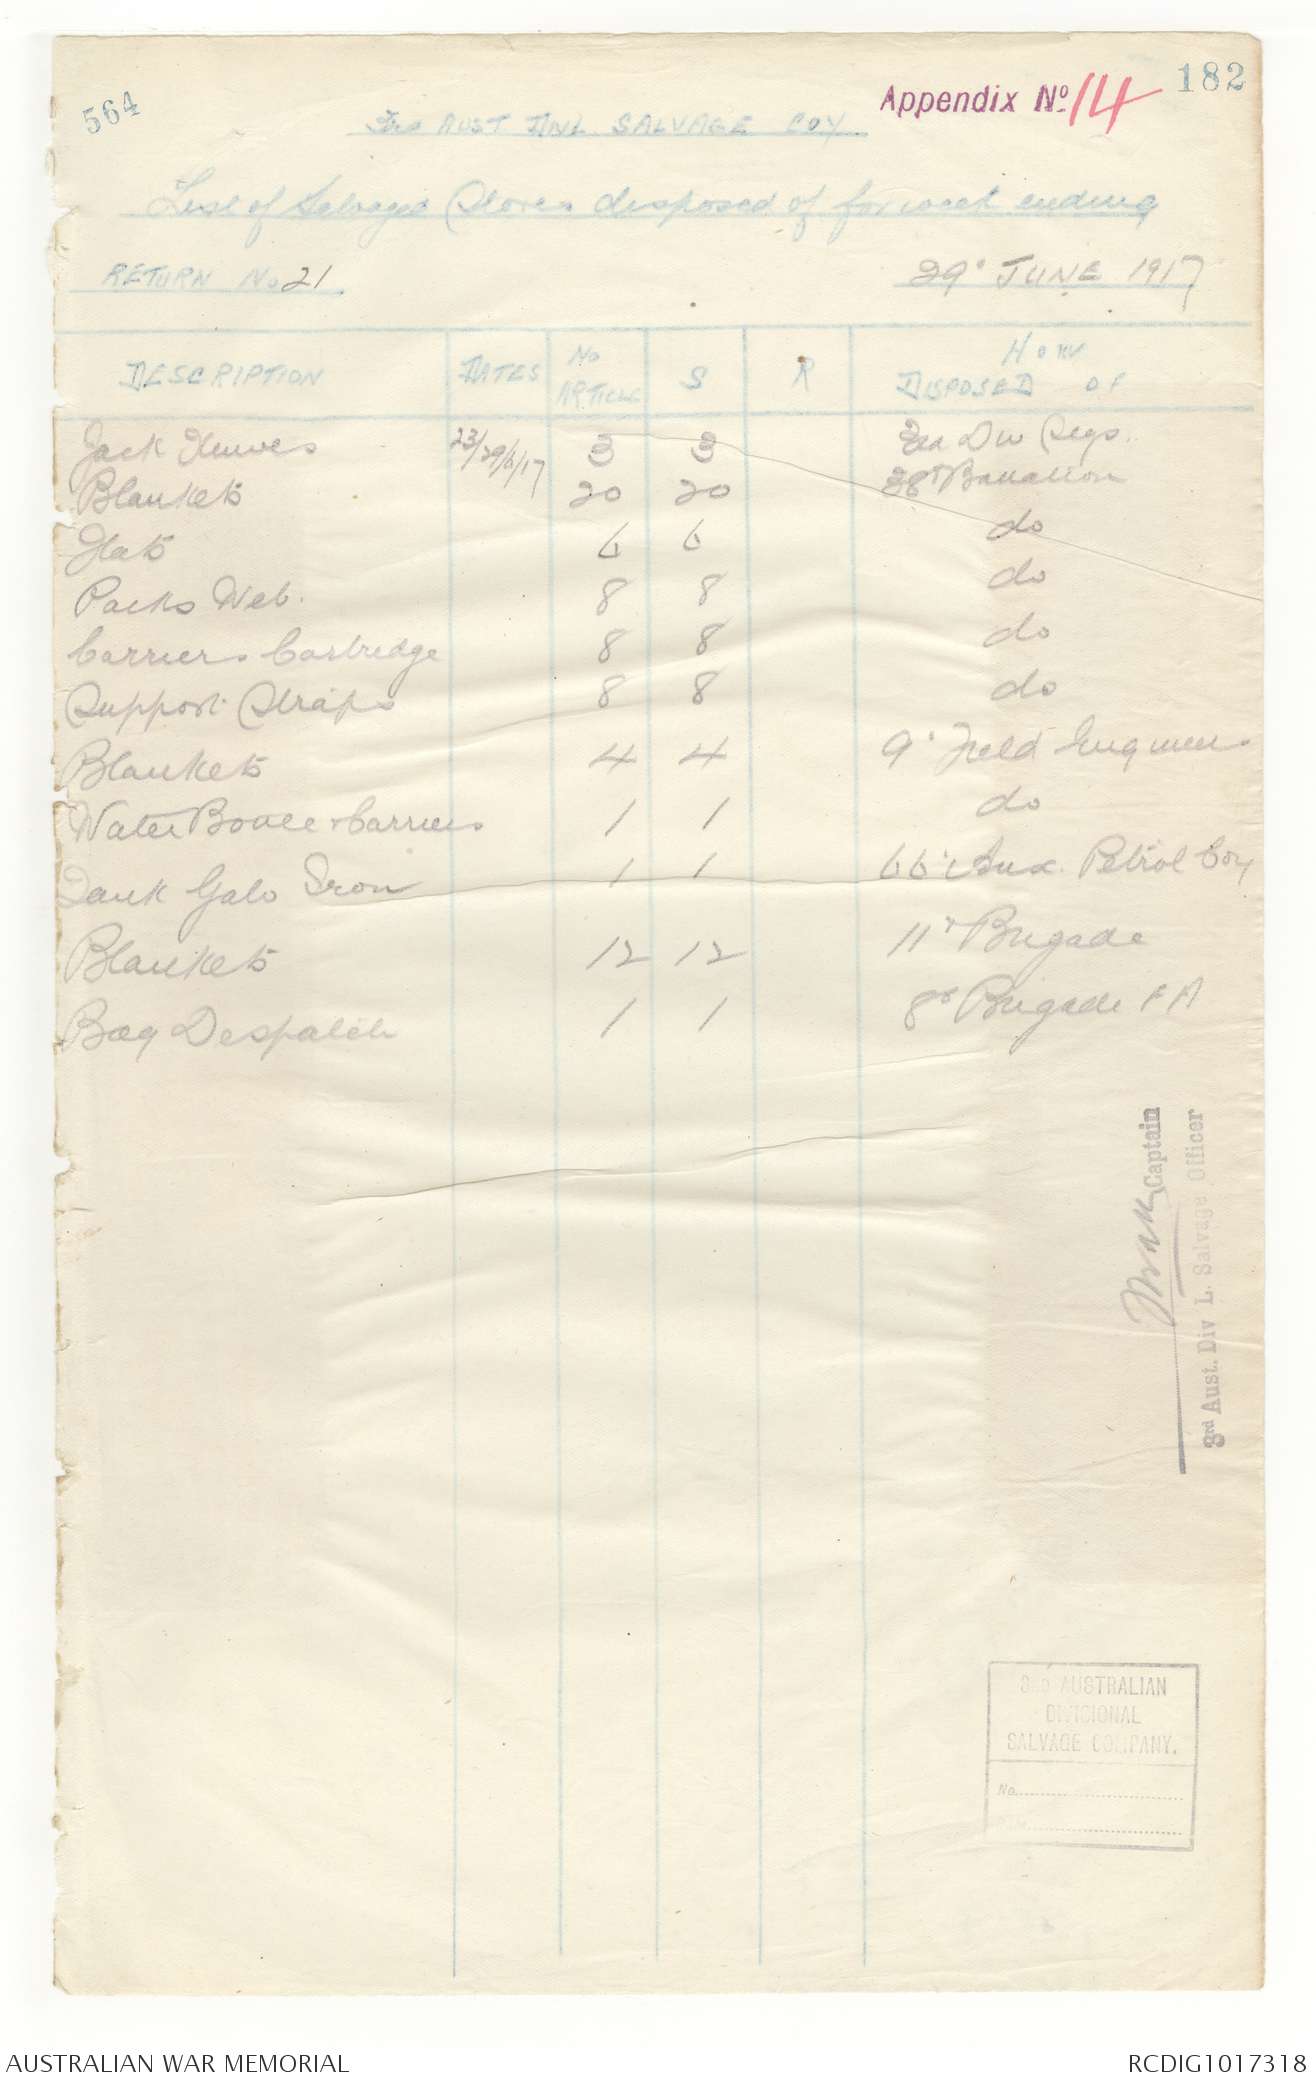 564
Appendix No. 14
182
3RD AUST. DNL. SALVAGE COY.
List of Salvage Stores disposed of for week ending
RETURN No 21
29th JUNE 1917
DESCRIPTION DATES No ARTICLE S R HOW DISPOSED OF
Jack Knives 23/29/6/17 3 3 3rd Div Sigs.
Blankets 20 20 38th Battalion
Hats 6 6 do
Packs Web. 8 8 do
Carriers Cartridge 8 8 do
Support Straps 8 8 do
Blankets 4 4 9th Field Engineers
Water Bottle & Carriers 1 1 do
Tank Galv Iron 1 1 66th Aux. Petrol Coy
Blankets 12 12 11th Brigade
Bag Despatch 1 1 8th Brigade FA
Captain
3rd Aust. Div L. Salvage Officer
3RD AUSTRALIAN
DIVISIONAL
SALVAGE COMPANY.
No.
AUSTRALIAN WAR MEMORIAL
RCDIG1017318